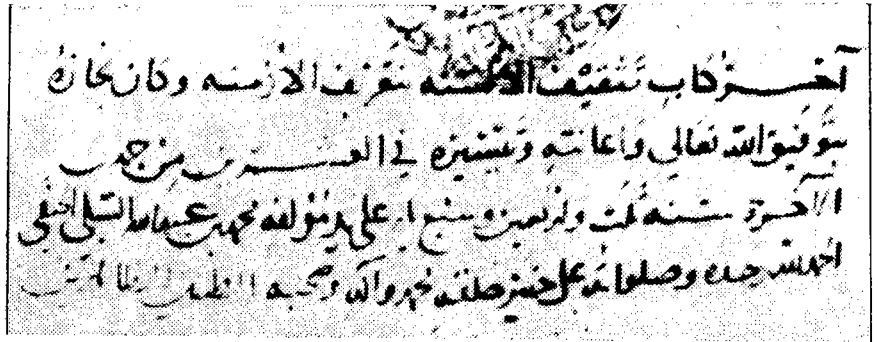 آخر كتاب تثقيف الألسنة بتعريف الأزمنة وكان نجازه
بتوفيق الله تعالى واعانته وتيسيره في العشرين من جمدى
الآخرة سنة ثلث واربعين وسبع على يد مؤلفه محمد بن عبد الله الشبلي الحنفي
الحمد لله وحده وصلواته على خير خلقه محمد وآله وصحبه الطيبين الطاهرين